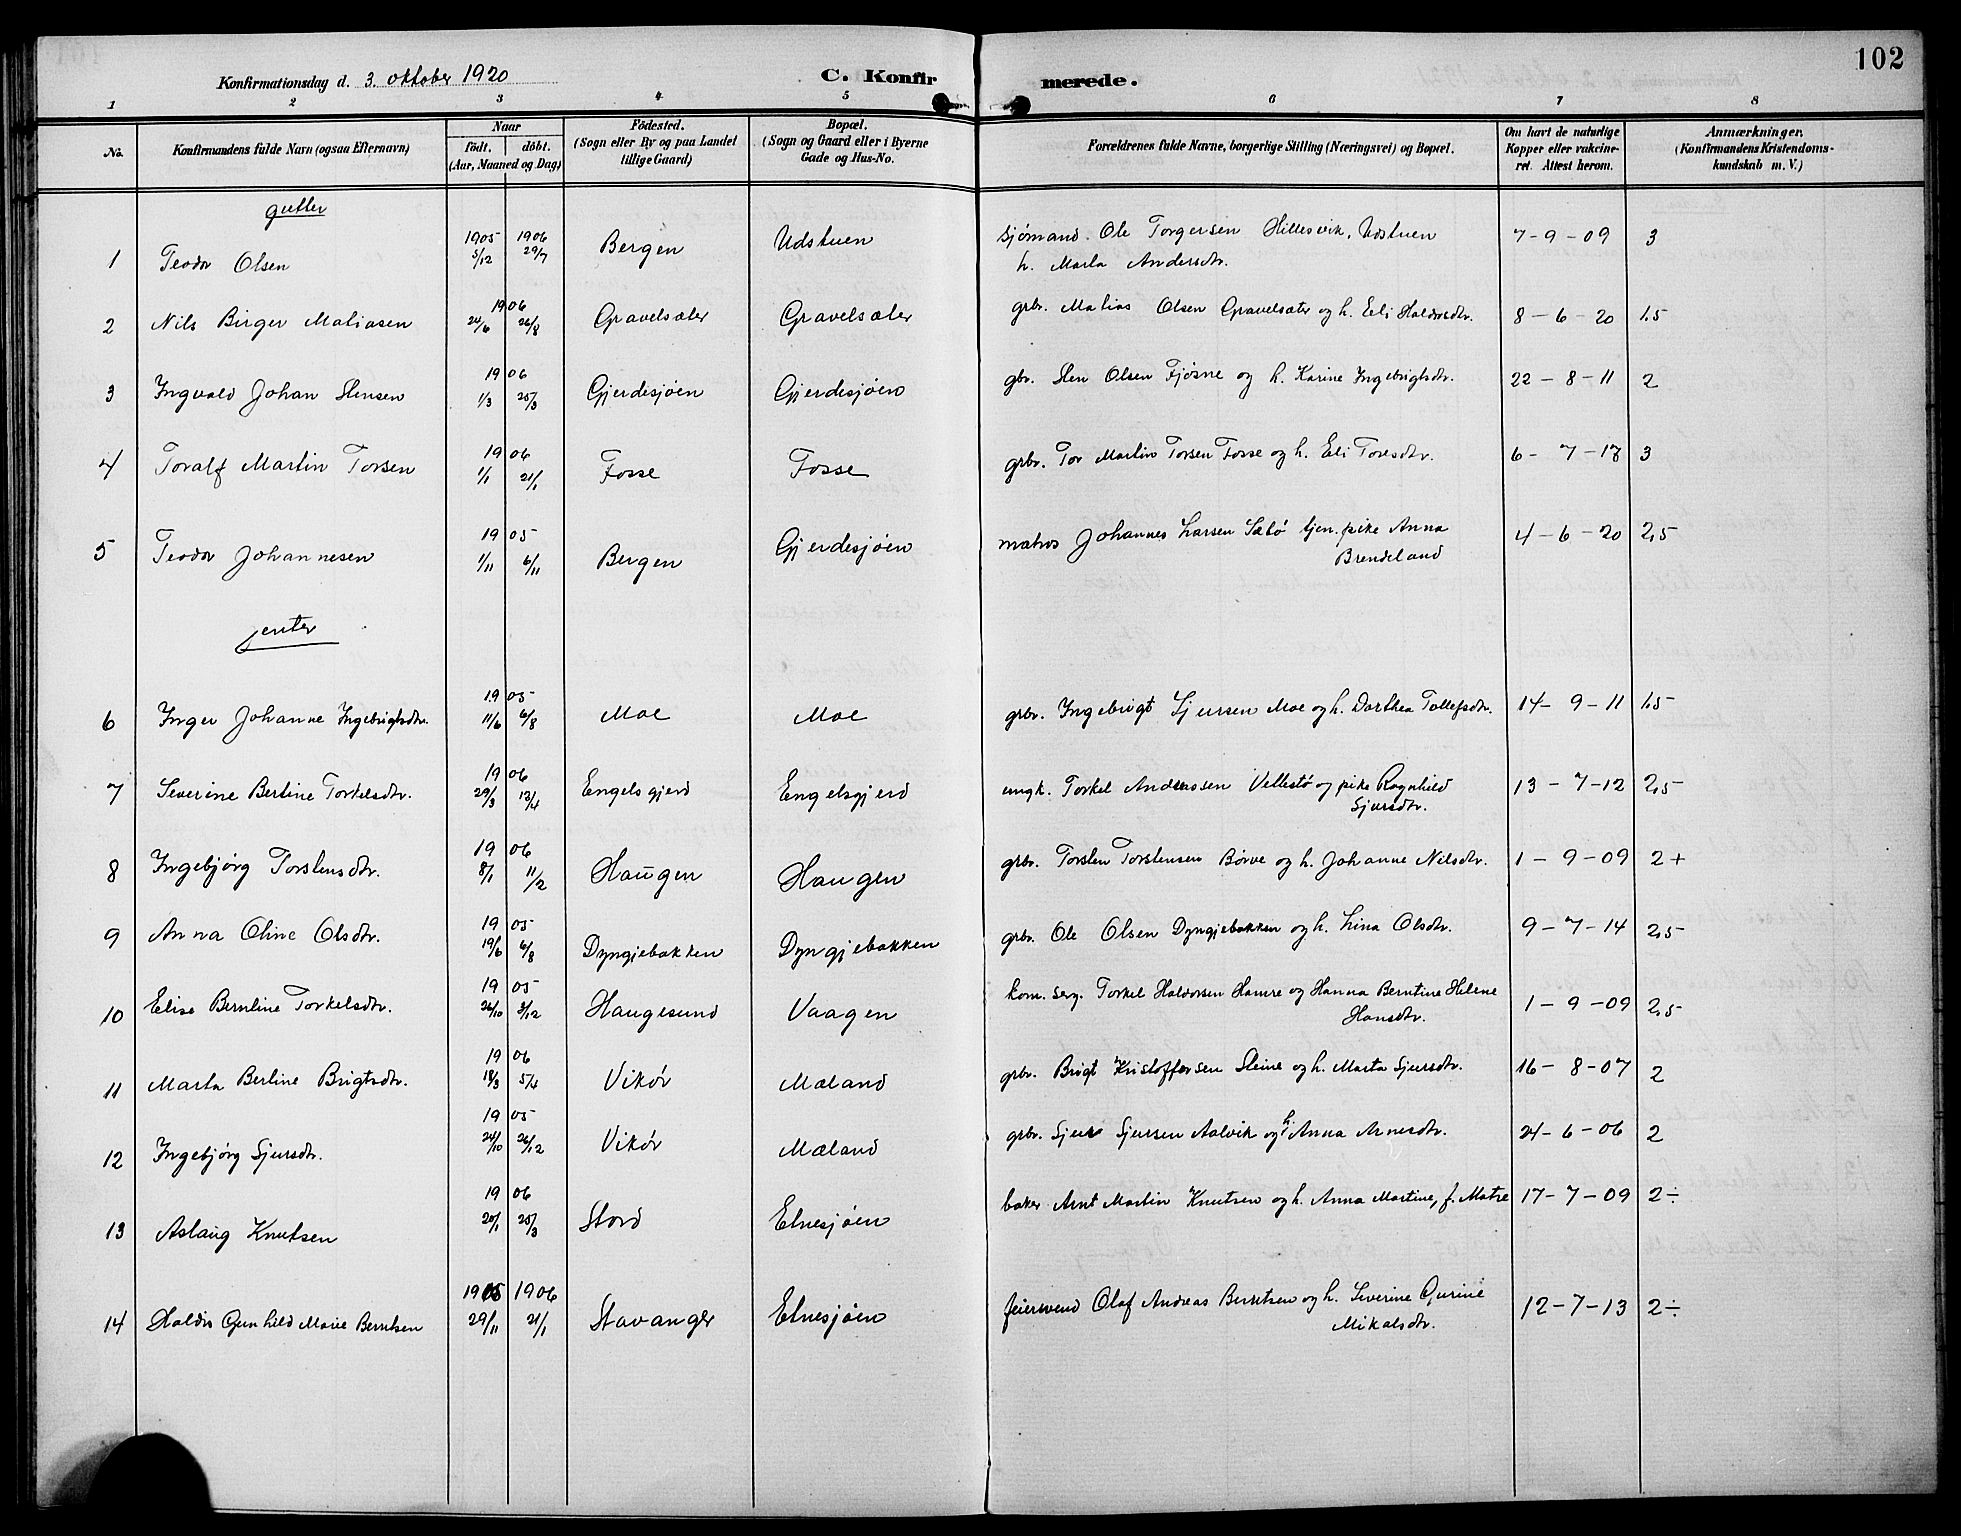 102
Konfirmationsdag d. 3. oktober 1920
C. Konfirmerede.
1 2 3 4 5 6 7 8
No.
Konfirmandens fulde Navn (ogsaa Efternavn)
Naar
födt. döbt.
(Aar, Maaned og Dag)
Födested.
(Sogn eller By og paa Landet
tillige Gaard)
Bopæl.
(Sogn og Gaard eller i Byerne
Gade og Hus-No.
Forældrenes fulde Navne, borgerlige Stilling (Næringsvei) og Bopæl.
Om havt de naturlige
Kopper eller vakcine-
ret. Attest herom.
Anmærkninger.
(Konfirmandens Kristendoms-
kundskab m. V.)
gutter
1 Teodor Olsen 1905 5/12 1906 29/7 Bergen Udstuen sjömand. Ole Torgersen Hillesvik, Udstuen 7-9-09 3
h. Marta Andersdtr.
2 Nils Birger Matiasen 1906 24/6 26/8 Gravelsæter Gravelsæter grbr. Matias Olsen Gravelsæter og h. Eli Haldorsdtr. 8-6-20 1.5
3 Ingvald Johan Stensen 1906 1/3 25/3 Gjerdesjøen Gjerdesjøen gbr. Sten Olsen Fjøsne og h. Karine Ingebrigtsdtr. 22-8-11 2
4 Toralf Martin Torsen 1906 1/1 21/1 Fosse Fosse grbr. Tor Martin Torsen Fosse og h. Eli Toresdtr. 6-7-17 3
5 Teodor Johannesen 1905 1/11 6/11 Bergen Gjerdesjøen matros Johannes Larsen Sæbø tjen. pike Anna 4-6-20 2,5
Brendeland
jenter
6 Inger Johanne Ingebrigtsdtr. 1905 11/6 6/8 Moe Moe grbr. Ingebrigt Sjursen Moe og h. Dorthea Tollefsdtr. 14-9-11 1.5
7 Severine Bertine Torkelsdtr. 1906 29/3 13/4 Engelsgjerd Engelsgjerd ungk. Torkel Anderssen Vellestø og pike Ragnhild 13-7-12 2,5
Sjursdtr.
8 Ingebjørg Torstensdtr. 1906 8/1 11/2 Haugen Haugen grbr. Torsten Torstensen Børve og h. Johanne Nilsdtr. 1-9-09 2+
9 Anna Oline Olsdtr. 1905 19/6 6/8 Dyngjebakken Dyngjebakken grbr. Ole Olsen Dyngjebakken og h. Lina Olsdtr. 9-7-14 2,5
10 Elise Berntine Torkelsdtr. 1905 26/10 3/12 Haugesund Vaagen kom. serg. Torkel Haldorsen Hamre og Hanna Berntine Helene 1-9-09 2,5
Hansdtr.
11 Marta Bertine Brigtsdtr. 1906 18/3 5/4 Vikør Mæland grbr. Brigt Kristoffersen Steine og h. Marta Sjursdtr. 16-8-07 2
12 Ingebjørg Sjursdtr. 1905 24/10 26/12 Vikør Mæland grbr. Sjur Sjursen Aalvik og h. Anna Arnesdtr. 24-6-06 2
13 Aslaug Knutsen 1906 20/1 25/3 Stord Etnesjøen baker Arnt Martin Knutsen og h. Anna Martine, f. Matre 17-7-09 2÷
14 Haldis Gunhild Marie Berntsen 1905 29/11 1906 21/1 Stavanger Etnesjøen feiersvend Olaf Andreas Berntsen og h. Severine Gurine 12-7-13 2÷
Mikalsdtr.